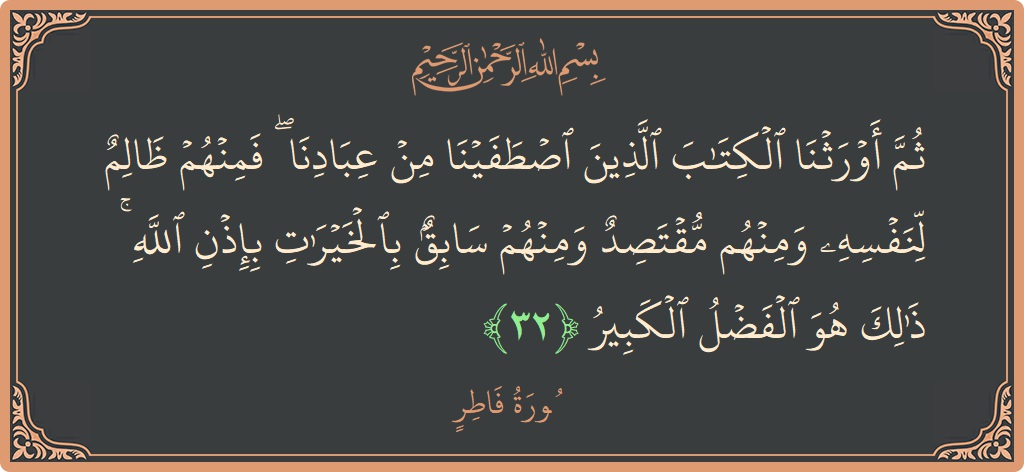 بِسْمِ اللَّهِ الرَّحْمَٰنِ الرَّحِيمِ
ثُمَّ أَوۡرَثۡنَا ٱلۡكِتَٰبَ ٱلَّذِينَ ٱصۡطَفَيۡنَا مِنۡ عِبَادِنَاۖ فَمِنۡهُمۡ ظَالِمٌ
لِّنَفۡسِهِۦ وَمِنۡهُم مُّقۡتَصِدٌ وَمِنۡهُمۡ سَابِقُۢ بِٱلۡخَيۡرَٰتِ بِإِذۡنِ ٱللَّهِۚ
ذَٰلِكَ هُوَ ٱلۡفَضۡلُ ٱلۡكَبِيرُ ﴿٣٢﴾
سُورَةُ فَاطِرٍ